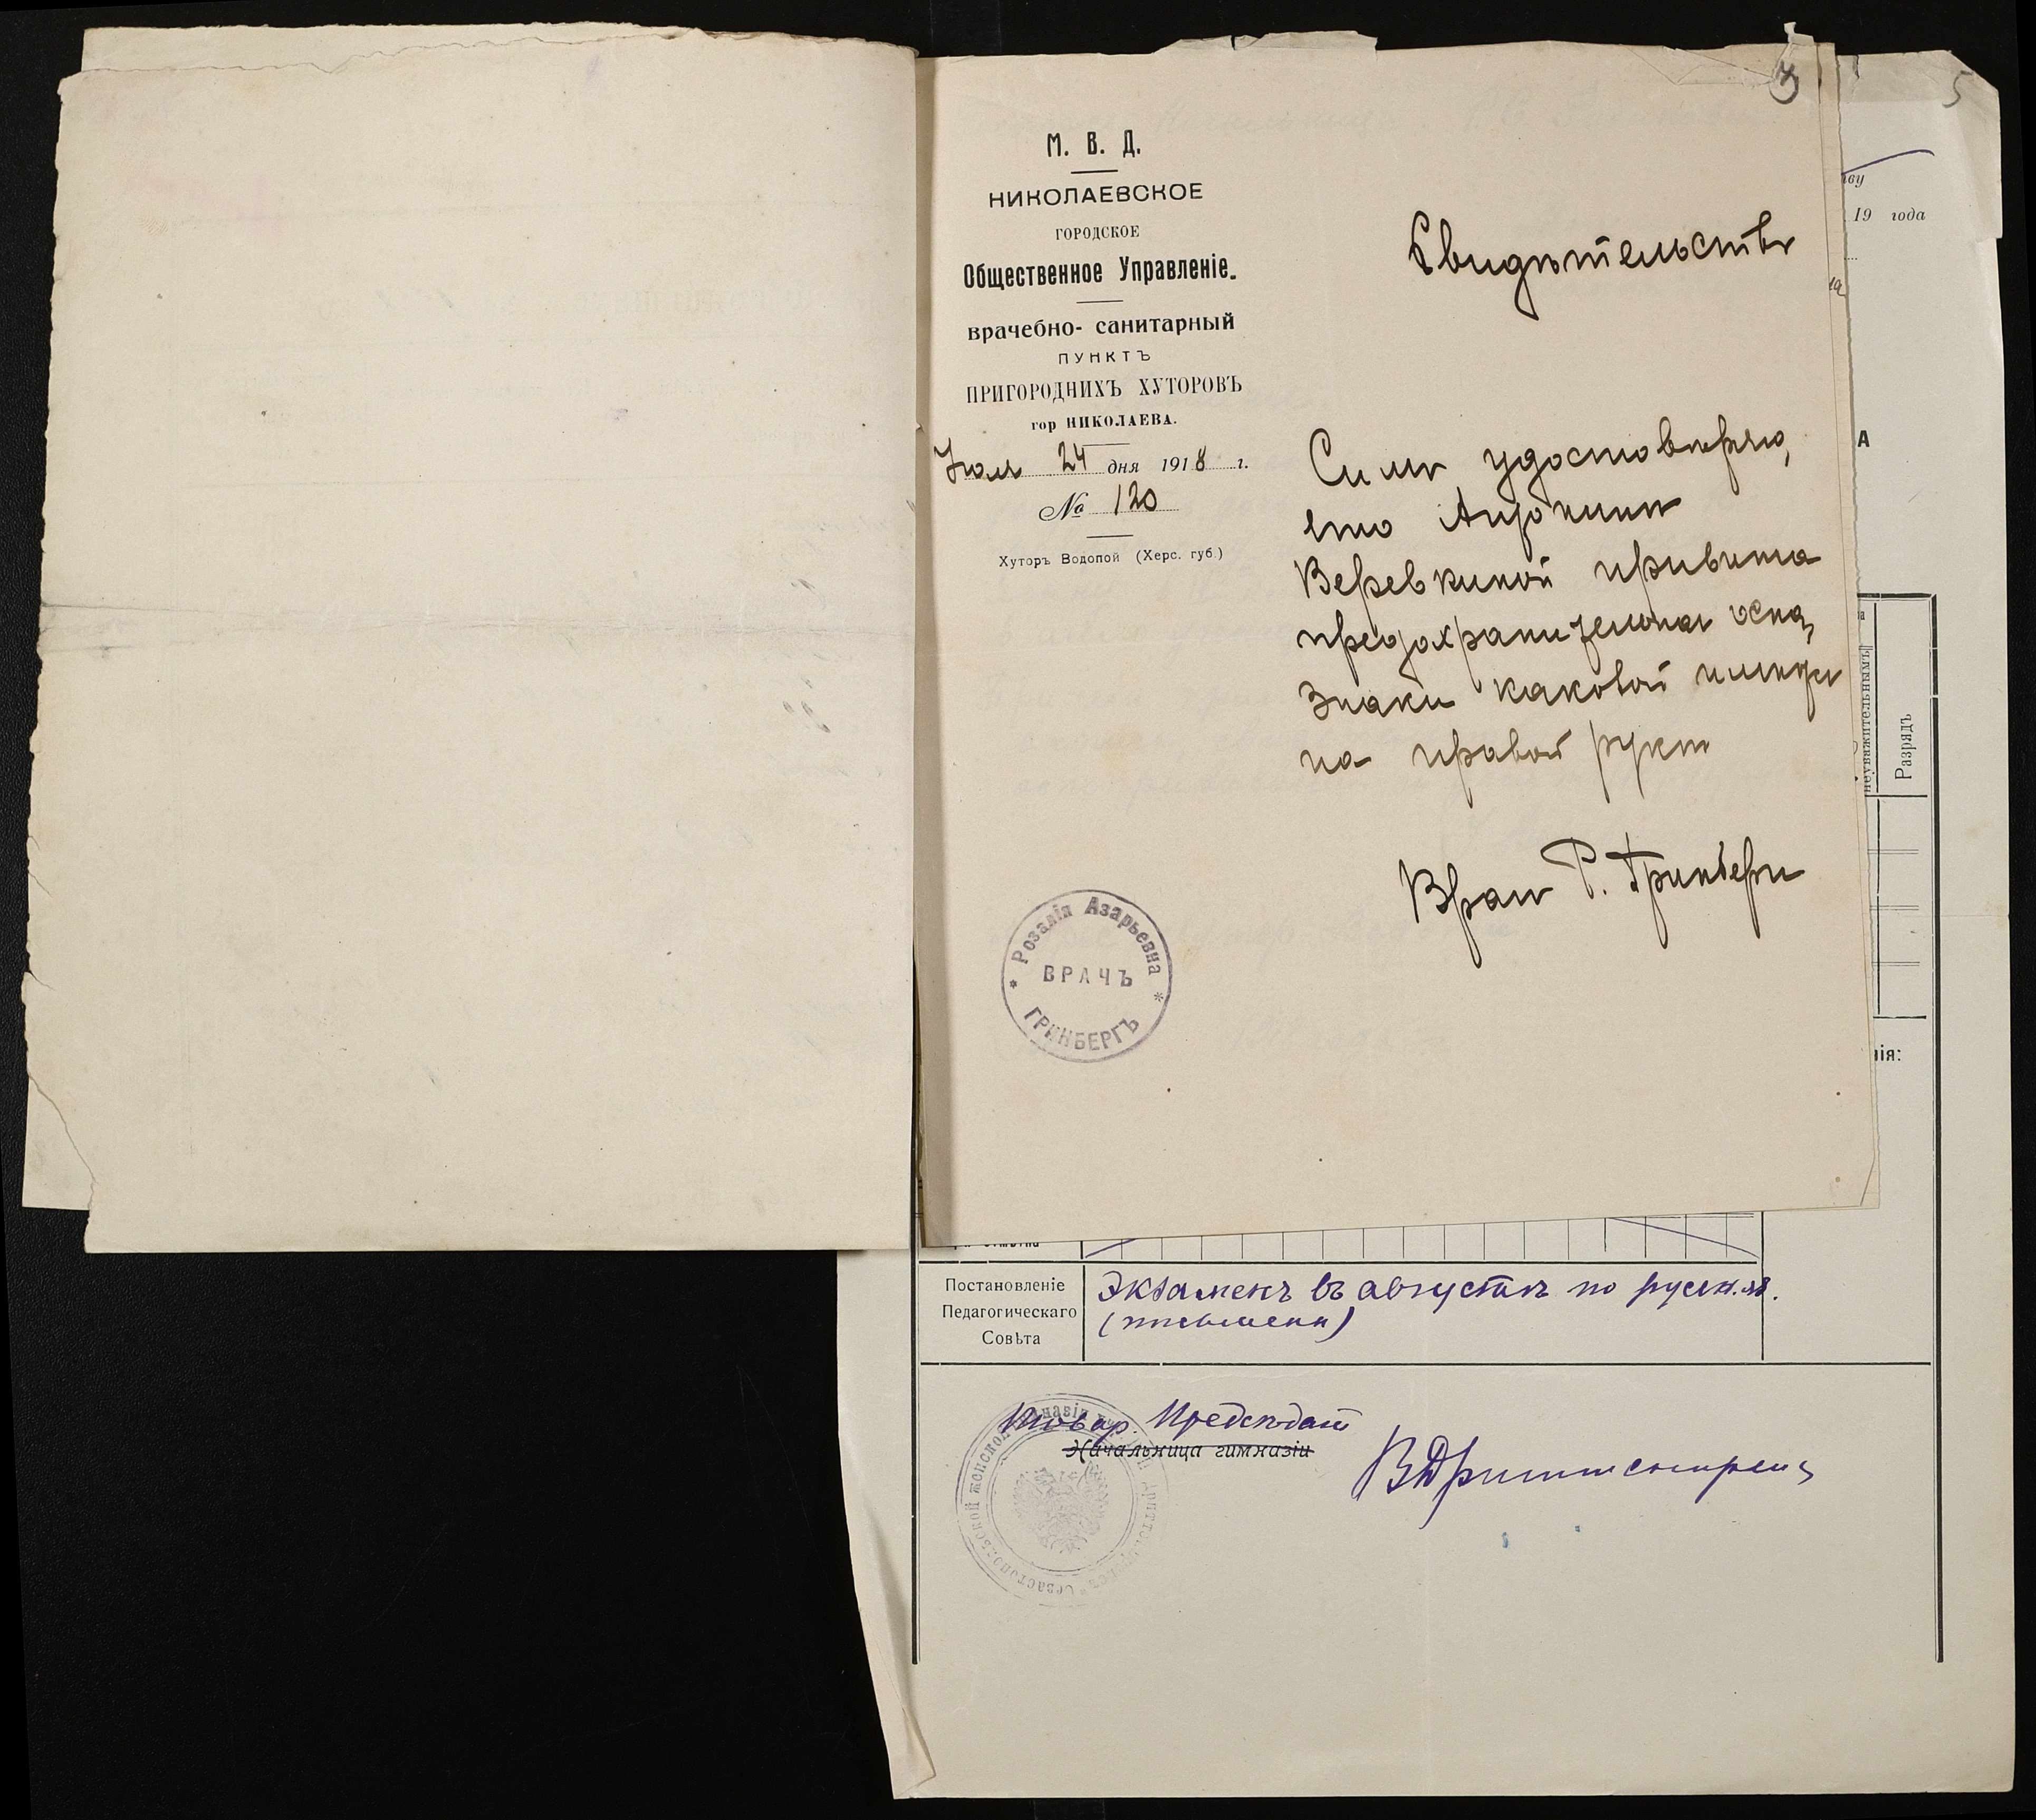 М. В. Д.
НИКОЛАЕВСКОЕ
ГОРОДСКОЕ
Общественное Управленіе.
врачебно- санитарный
ПУНКТЪ
ПРИГОРОДНИХЪ ХУТОРОВЪ
гор НИКОЛАЕВА.
Іюля 24 дня 1918 г.
№ 120
Хуторъ Водопой (Херс. губ.)
Свидѣтельство
Симъ удостовѣряю,
что
Веревкиной привита
предохранительная оспа,
знаки каковой имѣетъ
на правой рукѣ
Врач Р. Гринберг
* Розалія Азарьевна *
ВРАЧЪ
ГРИНБЕРГЪ
5
19 года
А
неуважительнымъ
Разрядъ
нія:
Постановленіе
Педагогическаго
Совѣта
Экзаменъ въ августѣ по русск. яз.
(письменн)
Товар. Предсѣдат
Начальница гимназіи